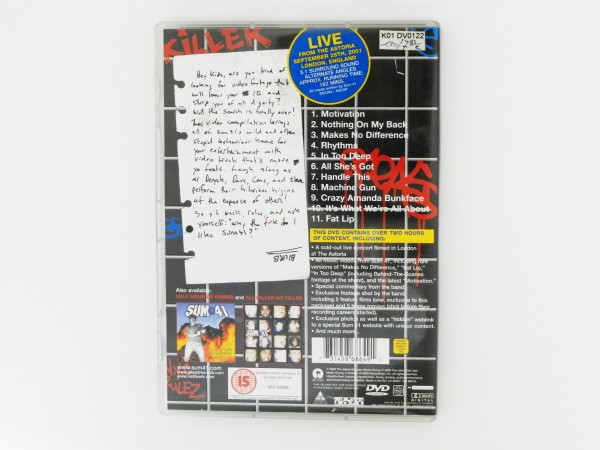 KiLLER
LIVE
FROM THE ASTORIA
SEPTEMBER 28TH, 2001
LONDON, ENGLAND
5.1 SURROUND SOUND
ALTERNATE ANGLES
APPROX. RUNNING TIME:
162 MINS.
All tracks written by Sum 41
SOCAN / ASCAP
K01 DV0122
Hey kids, are you tired of
looking for video footage that
will lower your IQ and
strip you of all dignity?
Well the search is finally over!
This video compilation brings
all of sum41's wild and often
stupid behaviour home for
your entertainment with
video tracks that's move
ya foots. Laugh along as
Deryck, Dave, Cone, and
perform their hilarious hijinx
at the expense of others!
So sit back, relax, and ask
yourself: "why the do I
like sum41?"
BLURB
1. Motivation
2. Nothing On My Back
3. Makes No Difference
4. Rhythms
5. In Too Deep
6. All She's Got
7. Handle This
8. Machine Gun
9. Crazy Amanda Bunkface
10. It's What We're All About
11. Fat Lip
THIS DVD CONTAINS OVER TWO HOURS
OF CONTENT, INCLUDING:
• A sold-out live concert filmed in London
at the Astoria
• All music videos from Sum 41, including rare
versions of "Makes No Difference," "Fat Lip,"
"In Too Deep" (including Behind-The-Scenes
footage at the shoot), and the latest "Motivation."
• Special commentary from the band
• Exclusive footage shot by the band
including 5 feature films (one, exclusive to this
package) and 5 home movies (shot before their
recording career started).
• Exclusive photos as well as a "hidden" weblink
to a special Sum 41 website with unique content.
• And much more.
Also available:
HALF HOUR OF POWER and ALL KILLER NO FILLER
SUM 41
www.sum41.com
15
7 31458 68649
DVD
VIDEO
DOLBY
DIGITAL